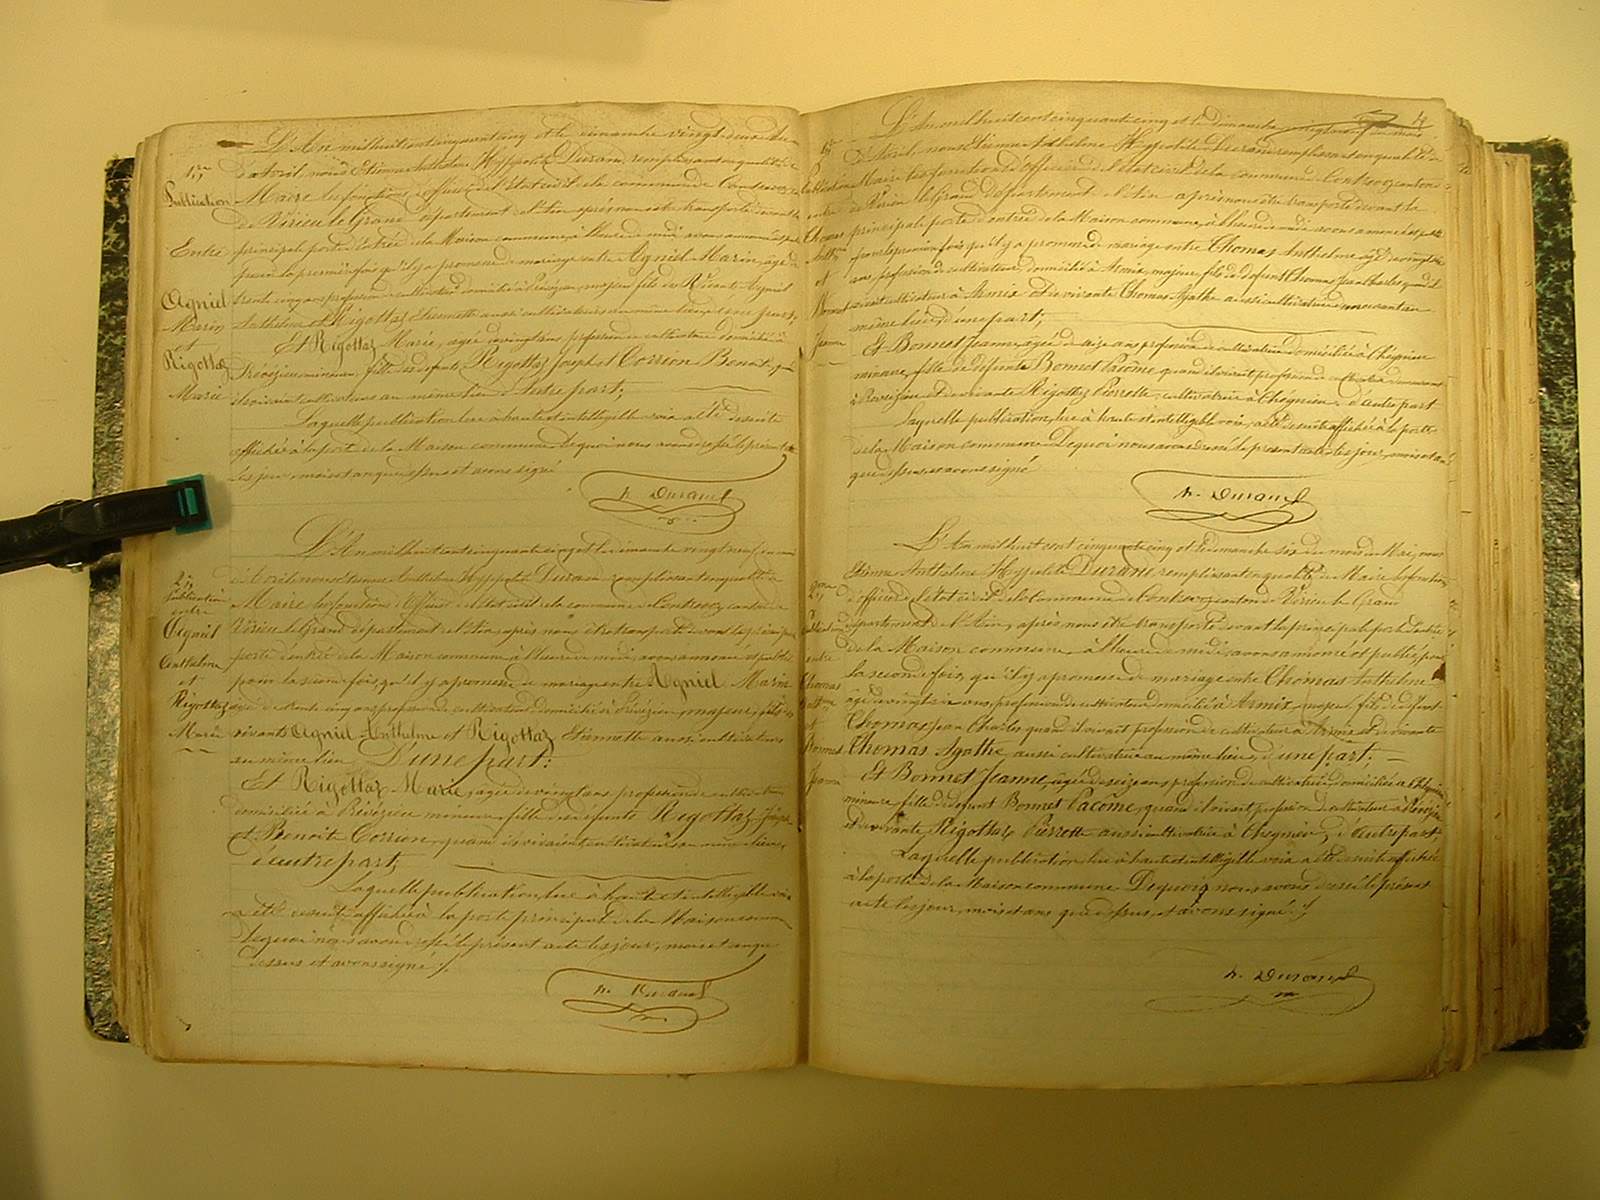 L'An mil huit cent cinquante cinq et le dimanche vingt deux du
1ère
d'avril nous Etienne Anthelme Hyppolite Durand, remplissant en qualité de
Publication
Maire les fonctions d'officier de l'état civil de la commune de Contrevoz canton
de Virieu le Grand département de l'Ain après nous être transporté devant la
Entre
principale porte d'entrée de la Maison commune, à l'heure de midi avons annoncé et
pour la première fois qu'il y a promesse de mariage entre Agniel Marin, âgé de
Agniel
Marin
et
Rigottaz
Marie
trente cinq ans profession de cultivateur domicilié à Prévézieu, majeur fils de Agniel
Anthelme et Rigottaz Etiennette aussi cultivateurs au même lieu, d'une part;
Et Rigottaz Marie, agée de vingt ans profession de cultivatrice domiciliée à
Prévézieu mineure, fille des défunts Rigottaz Joseph et Corrion Benoite,
vivaient cultivateurs au même lieu d'Autre part;
Laquelle publication lue à haute et intelligible voix a été de suite
affichée à la porte de la Maison commune. De quoi nous avons dressé le présent acte
les jour, mois et an que dessus et avons signé
h. Durand
L'An mil huit cent cinquante cinq et le dimanche vingt neuf du mois
2e
publication
entre
Agniel
Anthelme
et
Rigottaz
Marie
d'Avril nous Etienne Anthelme Hyppolite Durand remplissant en qualité de
Maire les fonctions d'Officier de l'état civil de la commune de Contrevoz canton de
Virieu le Grand département de l'Ain, après nous être transporté devant la principale
porte d'entrée de la Maison commune, à l'heure de midi, avons annoncé et publié
pour la seconde fois, qu'il y a promesse de mariage entre Agniel Marin
âgé de trente cinq ans profession de cultivateur domicilié à Prévézieu, majeur, fils des
vivants Agniel Anthelme et Rigottaz Etiennette aussi cultivateurs
au même lieu D'une part:
Et Rigottaz Marie, agée de vingt ans profession de cultivatrice
domiciliée à Prévézieu mineure fille des défunts Rigottaz Joseph
et Benoite Corrion, quand ils vivaient cultivateurs au même lieu,
d'autre part;
Laquelle publication, lue à haute et intelligible voix
a été de suite affichée à la porte principale de la Maison commune
De quoi nous avons dressé le présent acte les jour, mois et an que
dessus et avons signé ./.
h. Durand
14
L'An mil huit cent cinquante cinq et le dimanche vingt deux du mois
1ère
Publication
entre
Thomas
Anthme
et
Bonnet
Jeanne
d'Avril, nous Etienne Anthelme Hyppolite Durand remplissant en qualité de
Maire les fonctions d'officier de l'état civil de la commune de Contrevoz canton
de Virieu le Grand département de l'Ain après nous être transporté devant la
principale porte d'entrée de la Maison commune, à l'heure de midi avons annoncé et publié
pour la première fois qu'il y a promesse de mariage entre Thomas Anthelme âgé de vingt six
ans profession de cultivateur, domicilié à Armix, majeur, fils de défunt Thomas Jean Charles quand il
vivait cultivateur à Armix et de vivante Thomas Agathe aussi cultivatrice demeurant au
même lieu, d'une part;
Et Bonnet Jeanne, agée de seize ans profession de cultivatrice domiciliée à Chognieu
mineure, fille de défunt Bonnet Pacôme quand il vivait profession de cultivateur demeurant
à Prévézieu et de vivante Rigottaz Pierrette, cultivatrice à Chognieu d'autre part
Laquelle publication, lue à haute et intelligible voix, a été de suite affichée à la porte
de la Maison commune De quoi nous avons dressé le présent acte les jour, mois et an
que dessus et avons signé
h. Durand
L'An mil huit cent cinquante cinq et le dimanche six du mois de Mai, nous
2me
Publication
entre
Thomas
Anthme
et
Bonnet
Jeanne
Etienne Anthelme Hyppolite Durand remplissant en qualité de Maire les fonctions
d'officier de l'état civil de la Commune de Contrevoz canton de Virieu le Grand
département de l'Ain, après nous être transporté devant la principale porte d'entrée
de la Maison commune, à l'heure de midi, avons annoncé et publié, pour
la seconde fois, qu'il y a promesse de mariage entre Thomas Anthelme
âgé de vingt six ans, profession de cultivateur domicilié à Armix, majeur, fils de défunt
Thomas Jean Charles quand il vivait profession de cultivateur à Armix et de vivante
Thomas Agathe aussi cultivatrice au même lieu, d'une part;
Et Bonnet Jeanne, âgée de seize ans profession de cultivatrice domiciliée à Chognieu
mineure fille de défunt Bonnet Pacôme, quand il vivait, profession de cultivateur à Prévézieu
et de vivante Rigottaz Pierrette aussi cultivatrice à Chognieu, d'autre part;
Laquelle publication lue à haute et intelligible voix a été de suite affichée
à la porte de la Maison commune De quoi nous avons dressé le présent
acte les jour, mois et ans que dessus et avons signé ./.
h. Durand